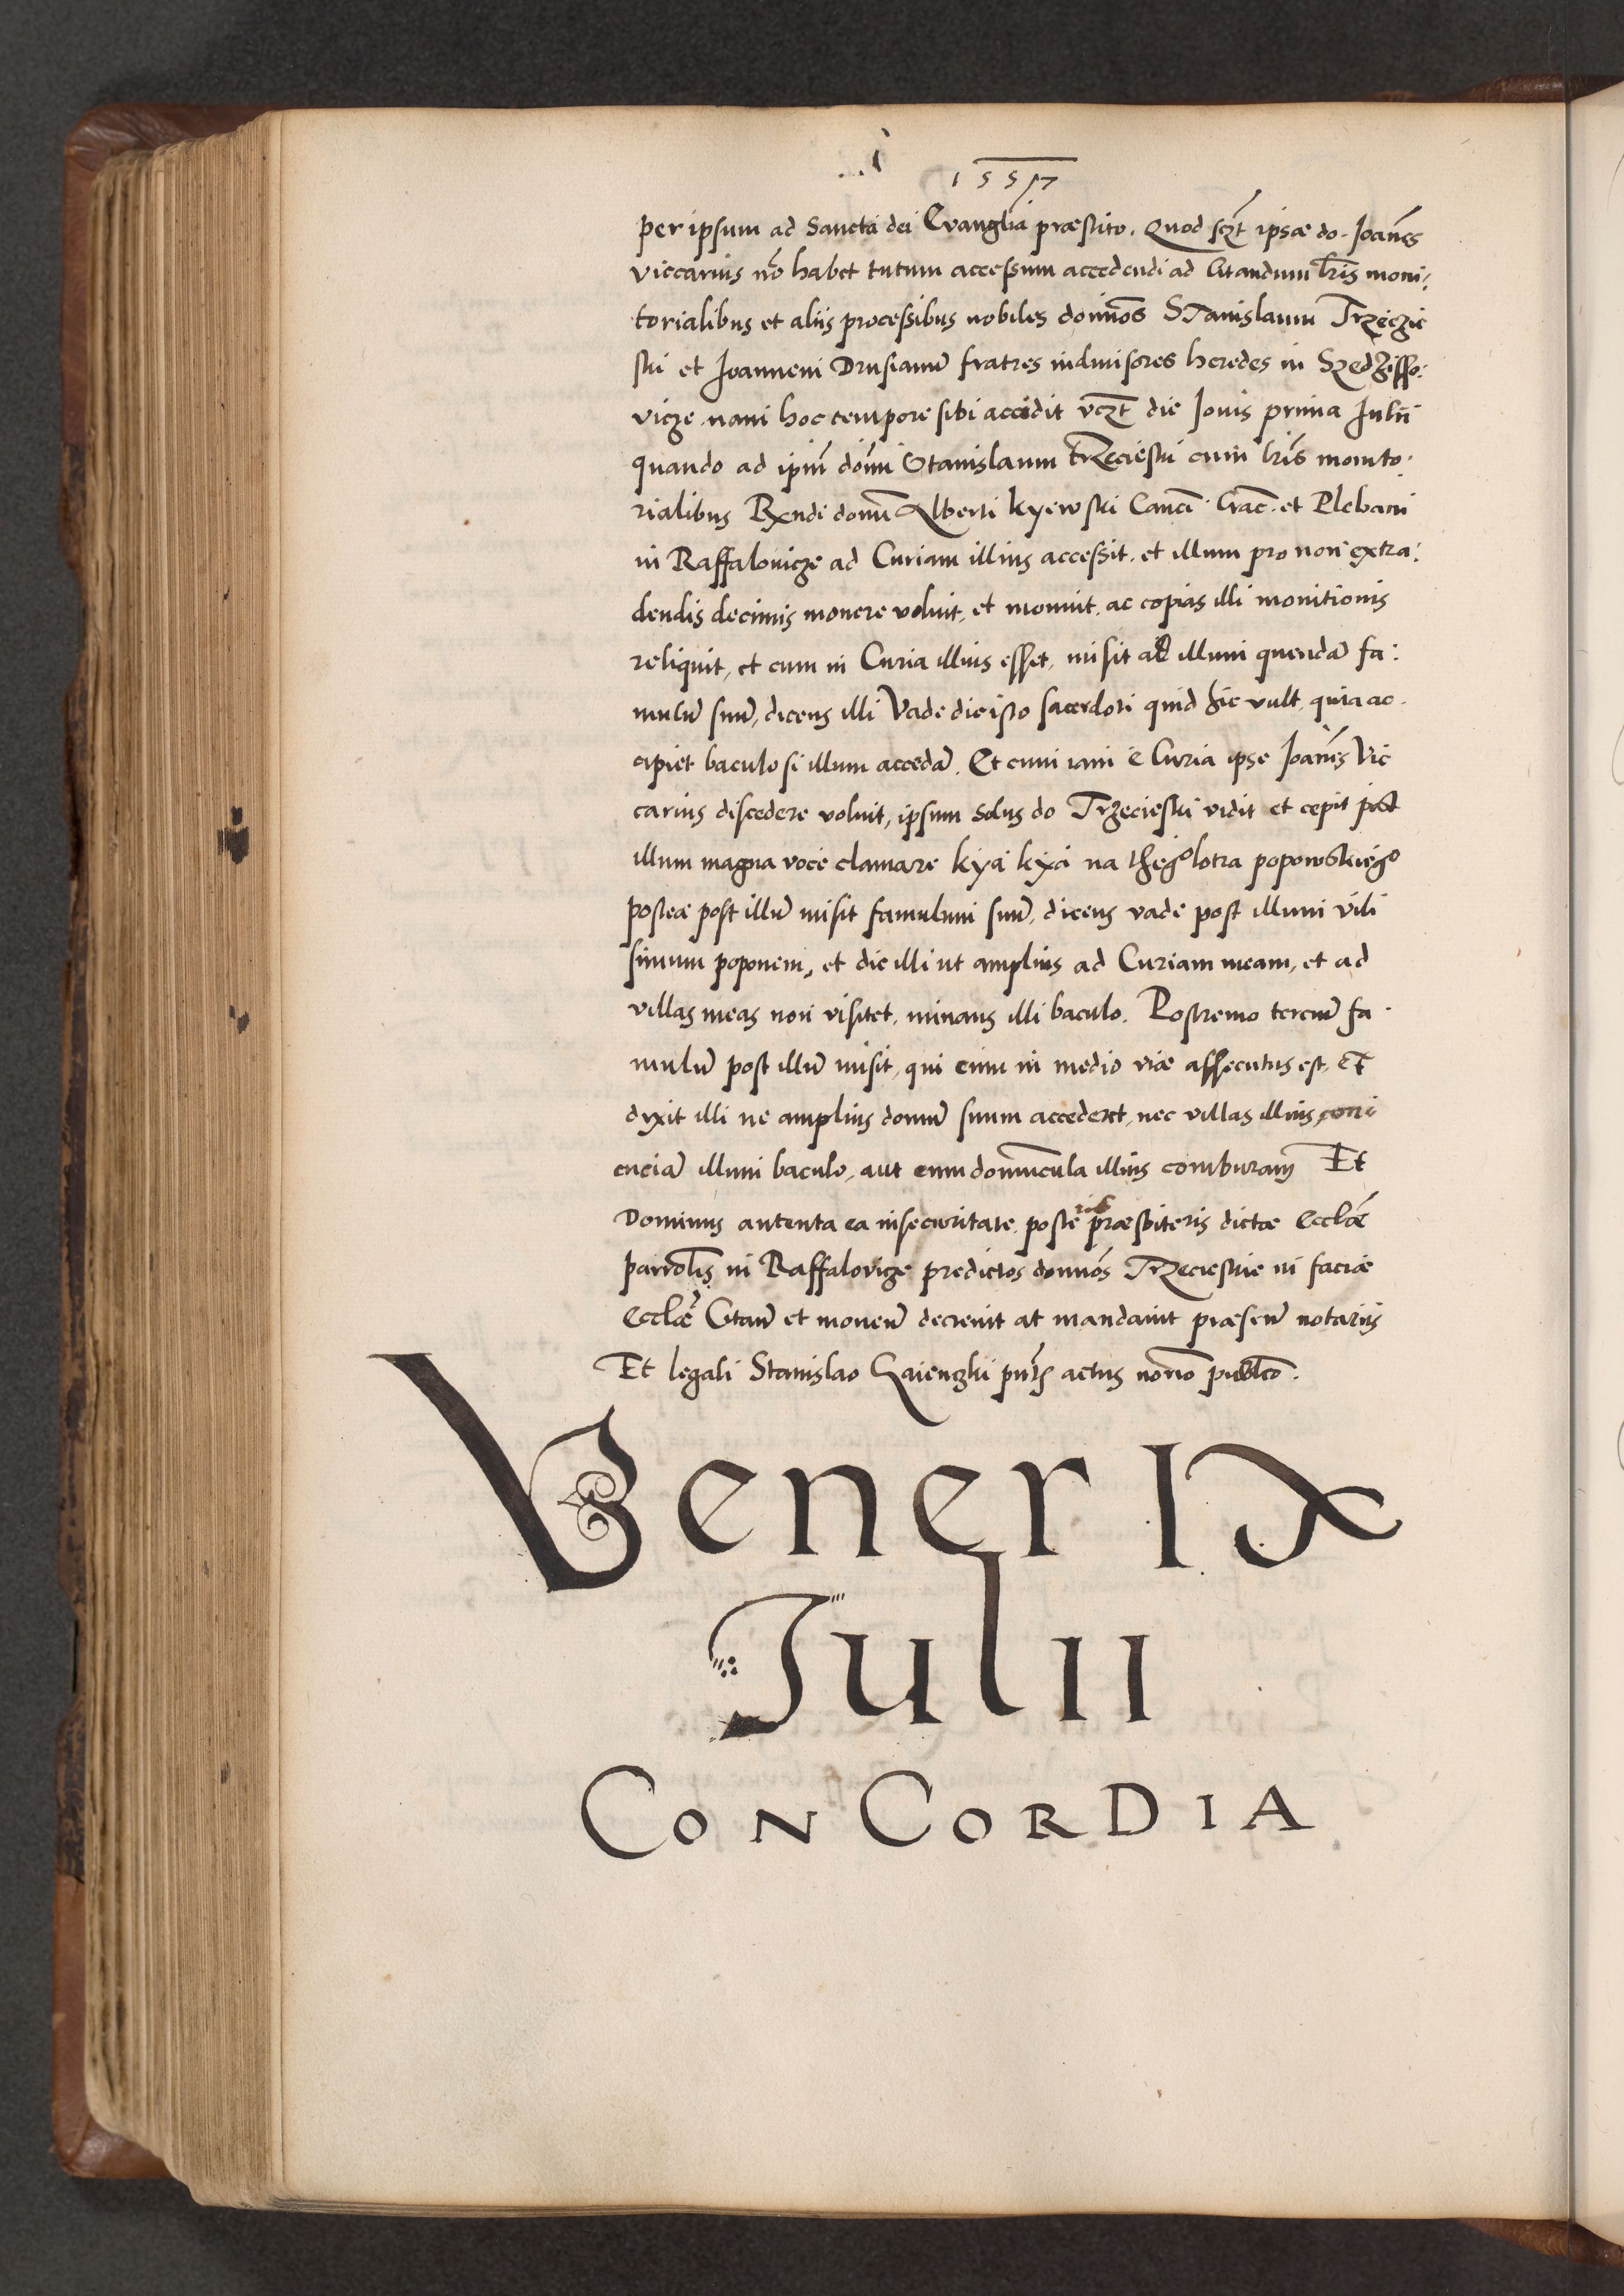 1557
per ipsum ad Sancta dei Evanglia præstito. Quod sczt ipsæ do. Joanes
viccarius no habet tutum accessum accedendi ad Citandum lris moni:
torialibus et aliis processibus nobiles domnos STanislaum Trzeczie
ski et Joannem Drusianu fratres indivisores heredes in Szedzisso:
vicze. nam hoc tempore sibi accidit vczt die Jovis prima Julii
quando ad ipm domi Stanislaum trzecieski cum lris monito.
rialibus Rxndi domi Alberti kyewski Canci Crac. et Plebani
in Raffalovicze ad Curiam illius accessit. et illum pro non extra:
dendis decimis monere voluit, et monuit. ac copias illi monitionis
reliquit, et cum in Curia illius esset, misit ad illum quendã fa:
mulu suu, dicens illi Vade dic isto sacerdoti quid hic vult, quia ac.
cipiet baculo si illum accedã. Et cum iam e Curia ipse Joanis Vic
carius discedere voluit, ipsum solus do Trzecieski vidit et cepit post
illum magna voce clamare kya kya na thego lotra popowskiego
posteæ post illu misit famulum suu, dicens vade post illum vili
simum poponem, et dic illi ut amplius ad Curiam meam, et ad
villas meas non visitet, minans illi baculo. Postremo terciu fa.
mulu post illu misit, qui eum in medio viæ assecutus est, et
dixit illi ne amplius domu suum accederet, nec villas illius,
enciã illum baculo, aut eum domuncula illius comburam Et
Dominus autenta ea insecuritate. poste præsbiteris dictæ Ecclæ
parrolis in Raffalovicze predictos domnos Trzecieskie in faciæ
Ecclæ Citan et monen decrevit at mandavit præsen notariis
Et legali Stanislao Gaienczki pntis actus norio publco.
Vener IX
Julii
CONCORDIA